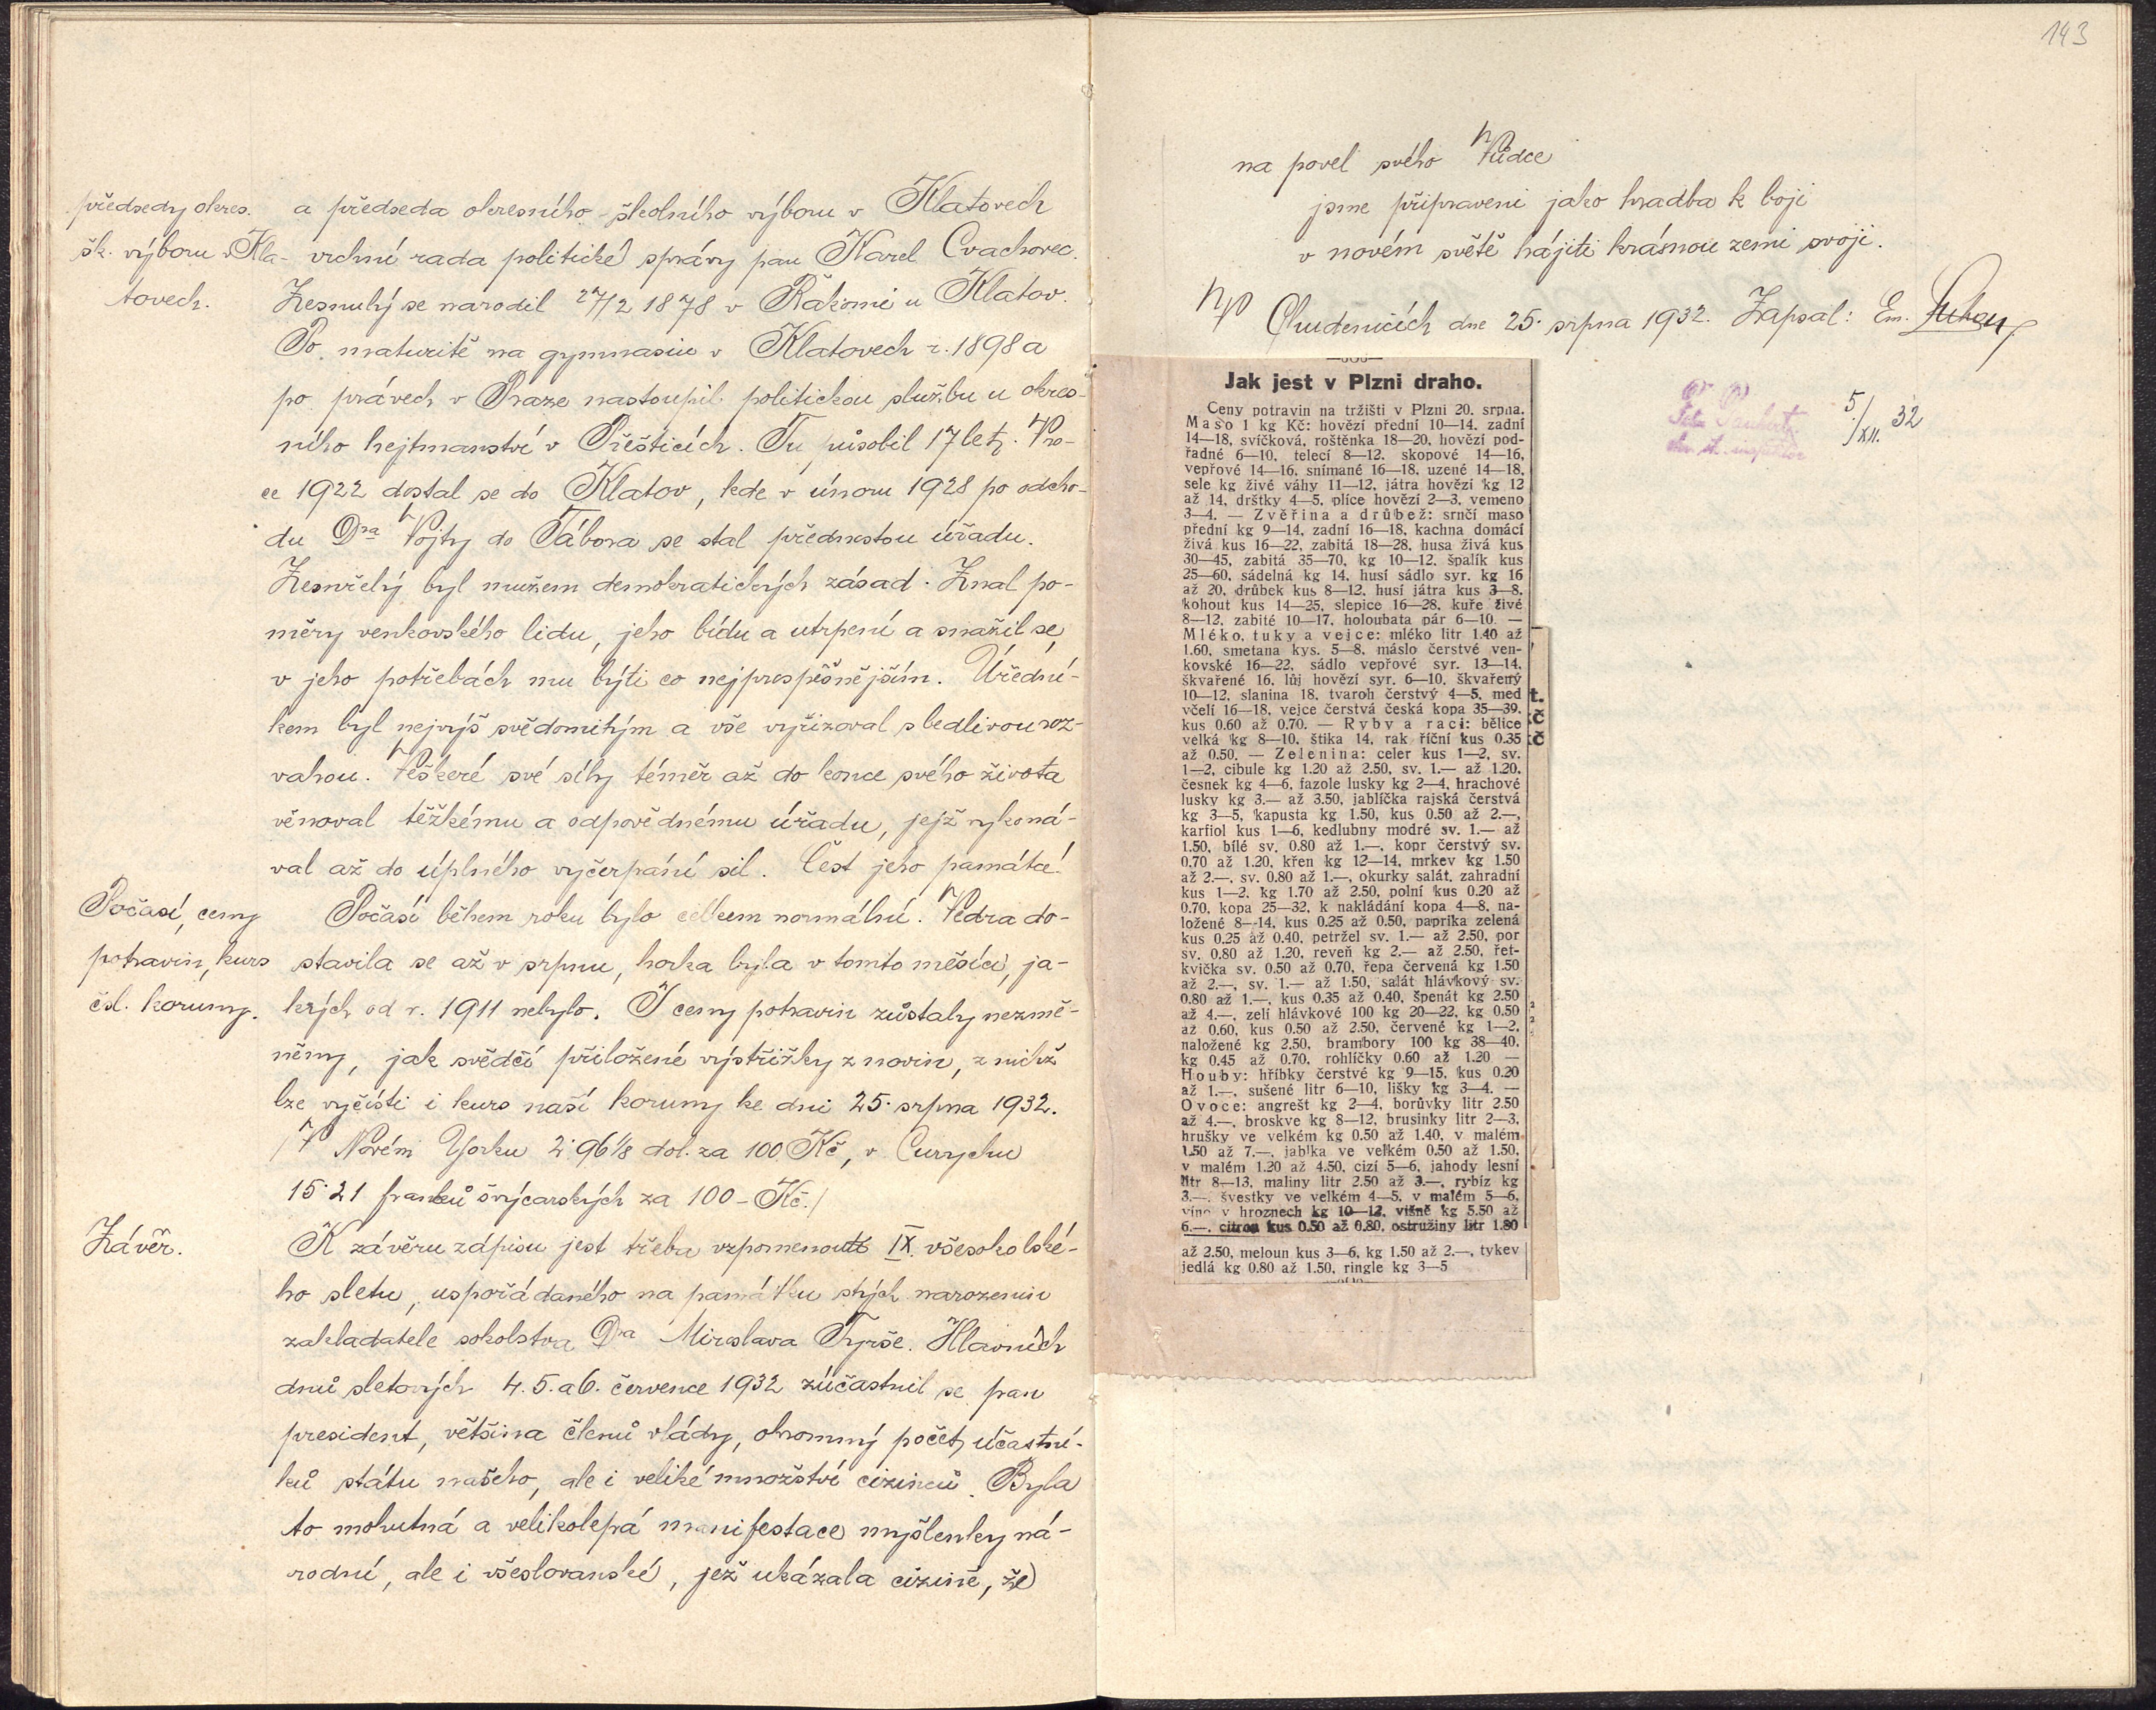 předsedy okres.
šk. výboru v Kla-
tovech.
a předseda okresního školního výboru v Klatovech
vrchní rada politické správy pan Karel Cvachovec.
Zesnulý se narodil 27/2 1878 v Řakomi u Klatov.
Po maturitě na gymnasiu v Klatovech r. 1898 a
po právech v Praze nastoupil politickou službu u okres-
ního hejtmanství v Přešticích. Tu působil 17 let. V ro-
ce 1922 dostal se do Klatov, kde v únoru 1928 po odcho-
du Dra Vojty do Tábora se stal přednostou úřadu.
Zesnřelý byl mužem demokratických zásad. Znal po-
měry venkovského lidu, jeho bídu a utrpení a snažil se,
v jeho potřebách mu býti co nejprospěšnějším. Úřední-
kem byl nejvýš svědomitým a vše vyřizoval s bedlivou roz-
vahou. Veškeré své síly téměř až do konce svého života
věnoval těžkému a odpovědnému úřadu, jejž vykoná-
val až do úplného vyčerpání sil. Čest jeho památce!
Počasí, ceny
potravin, kurs
čsl. koruny.
Počasí během roku bylo celkem normální. Vedra do-
stavila se až v srpnu, horka byla v tomto měsíci, ja-
kých od r. 1911 nebylo. I ceny potravin zůstaly nezmě-
něny, jak svědčí přiložené výstřižky z novin, z nichž
lze vyčísti i kurs naší koruny ke dni 25. srpna 1932.
/V Novém Yorku 2.96 1/8 dol. za 100 Kč, v Curychu
15.21 franků švýcarských za 100 - Kč./
Závěr.
K závěru zápisu jest třeba vzpomenouti IX. všesokolské-
ho sletu, uspořádaného na památku stých narozenin
zakladatele sokolstva Dra Miroslava Tyrše. Hlavních
dnů sletových 4. 5. a 6. července 1932 zúčastnil se pan
president, většina členů vlády, ohromný počet účastní-
ků státu našeho, ale i veliké množství cizinců. Byla
to mohutná a velikolepá manifestace myšlenky ná-
rodní, ale i všeslovanské, jež ukázala cizině, že
143
na povel svého Vůdce
jsme připraveni jako hradba k boji
v novém světě hájiti krásnou zemi svoji.
V Chudenicích dne 25. srpna 1932. Zapsal: Em.
5/XII. 32
Jak jest v Plzni draho.
Ceny potravin na tržišti v Plzni 20. srpna.
Maso 1 kg Kč: hovězí přední 10—14, zadní
14—18, svíčková, roštěnka 18—20, hovězí pod-
řadné 6—10, telecí 8—12, skopové 14—16,
vepřové 14—16, snímané 16—18, uzené 14—18,
sele kg živé váhy 11—12, játra hovězí kg 12
až 14, drštky 4—5, plíce hovězí 2—3, vemeno
3—4. — Zvěřina a drůbež: srnčí maso
přední kg 9—14, zadní 16—18, kachna domácí
živá kus 16—22, zabitá 18—28, husa živá kus
30—45, zabitá 35—70, kg 10—12, špalík kus
25—60, sádelná kg 14, husí sádlo syr. kg 16
až 20, drůbek kus 8—12, husí játra kus 3—8,
kohout kus 14—25, slepice 16—28, kuře živé
8—12, zabité 10—17, holoubata pár 6—10. —
Mléko, tuky a vejce: mléko litr 1.40 až
1.60, smetana kys. 5—8, máslo čerstvé ven-
kovské 16—22, sádlo vepřové syr. 13—14,
škvařené 16, lůj hovězí syr. 6—10, škvařený
10—12, slanina 18, tvaroh čerstvý 4—5, med
včelí 16—18, vejce čerstvá česká kopa 35—39,
kus 0.60 až 0.70. — Ryby a raci: bělice
velká kg 8—10, štika 14, rak říční kus 0.35
až 0.50. — Zelenina: celer kus 1—2, sv.
1—2, cibule kg 1.20 až 2.50, sv. 1.— až 1.20,
česnek kg 4—6, fazole lusky kg 2—4, hrachové
lusky kg 3.— až 3.50, jablíčka rajská čerstvá
kg 3—5, kapusta kg 1.50, kus 0.50 až 2.—,
karfiol kus 1—6, kedlubny modré sv. 1.— až
1.50, bílé sv. 0.80 až 1.—, kopr čerstvý sv.
0.70 až 1.20, křen kg 12—14, mrkev kg 1.50
až 2.—, sv. 0.80 až 1.—, okurky salát. zahradní
kus 1—2, kg 1.70 až 2.50, polní kus 0.20 až
0.70, kopa 25—32, k nakládání kopa 4—8, na-
ložené 8—14, kus 0.25 až 0.50, paprika zelená
kus 0.25 až 0.40, petržel sv. 1.— až 2.50, por
sv. 0.80 až 1.20, reveň kg 2.— až 2.50, řet-
kvička sv. 0.50 až 0.70, řepa červená kg 1.50
až 2.—, sv. 1.— až 1.50, salát hlávkový sv.
0.80 až 1.—, kus 0.35 až 0.40, špenát kg 2.50
až 4.—, zelí hlávkové 100 kg 20—22, kg 0.50
až 0.60, kus 0.50 až 2.50, červené kg 1—2,
naložené kg 2.50, brambory 100 kg 38—40,
kg 0.45 až 0.70, rohlíčky 0.60 až 1.20 —
Houby: hříbky čerstvé kg 9—15, kus 0.20
až 1.—, sušené litr 6—10, lišky kg 3—4. —
Ovoce: angrešt kg 2—4, borůvky litr 2.50
až 4.—, broskve kg 8—12, brusinky litr 2—3,
hrušky ve velkém kg 0.50 až 1.40, v malém
1.50 až 7.—, jablka ve velkém 0.50 až 1.50,
v malém 1.20 až 4.50, cizí 5—6, jahody lesní
litr 8—13, maliny litr 2.50 až 3.—, rybíz kg
3.—, švestky ve velkém 4—5, v malém 5—6,
víno v hroznech kg 10—12, višně kg 5.50 až
6.—, citron kus 0.50 až 0.80, ostružiny litr 1.80
až 2.50, meloun kus 3—6, kg 1.50 až 2.—, tykev
jedlá kg 0.80 až 1.50, ringle kg 3—5